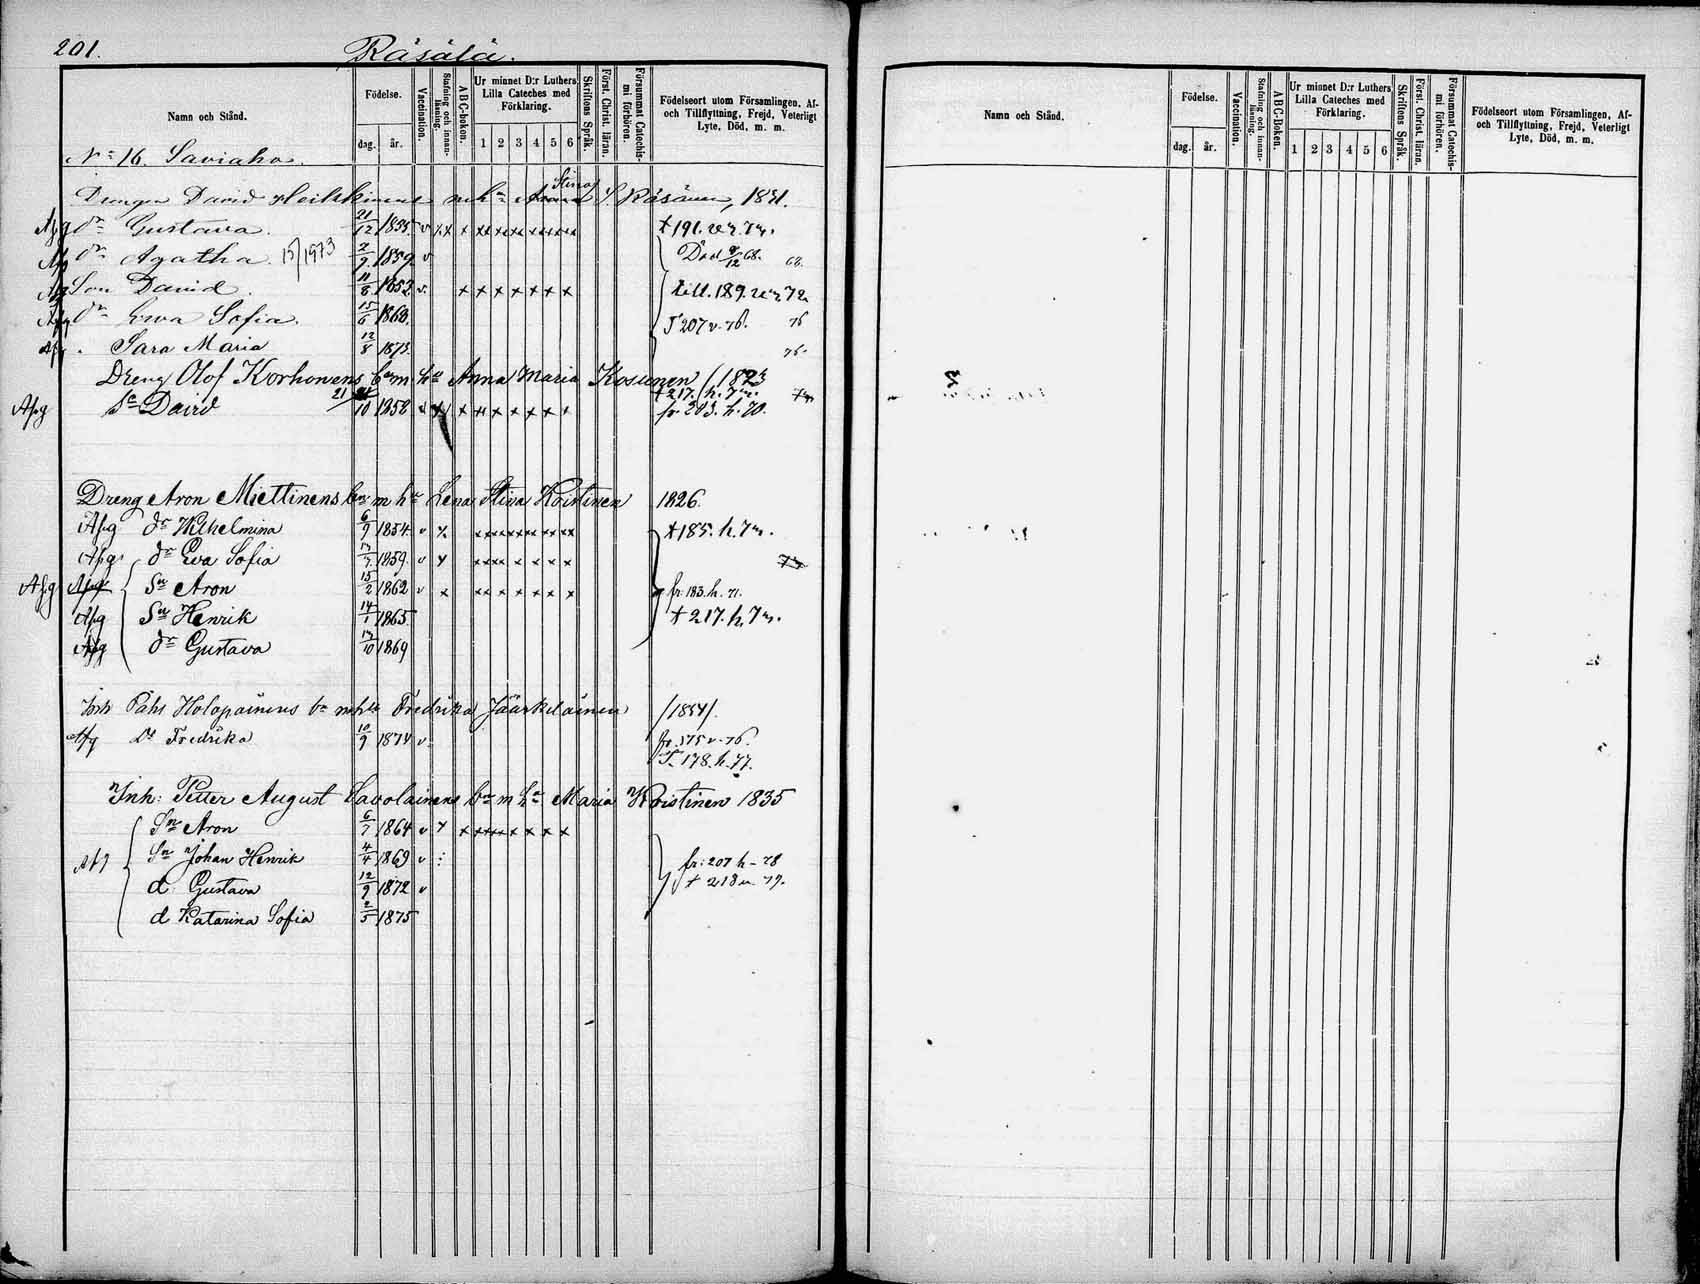 201. Räsälä.
Namn och Stånd. Födelse. dag. år. Vaccination. Stafning och innanläsning. A B C-boken. Ur minnet D:r Luthers Lilla Cateches med Förklaring. 1 2 3 4 5 6 Skriftens Språk. Först. Christ. läran. Försummat Catechismi förhören. Födelseort utom Församlingen, Af- och Tillflyttning, Frejd, Veterligt Lyte, Död, m. m.
N:o 16. Saviaho.
Drengen David Heikkinens m h:u Stina S. Räsänen, 1821.
Afg dr Gustava. 21/12 1855. v x x x x x x x x x † 191. v. 7
Afg dr Agatha. 15/1973 2/9. 1859 v Död 9/12 68. 68.
Afg Son David. 11/8 1852. v. x x x x x x x till. 189. 72
Afg dr Ewa Sofia. 15/6 1868. T 207 v. 76. 76
Afg. Sara Maria 12/8 1873. 76.
Dreng Olof Korhonens barn m h:u Anna Maria Kosunen /1823
† 217. h. 7
Afg Sn David 21/10 1858 x x x x x x x fr 203. h. 70.
Dreng Aron Miettinens bn m hu Lena Stina Koistinen 1826.
Afg dr Wilhelmina 6/9 1854. v x x x x x x x x † 185. h. 7
Afg dr Eva Sofia 1859. v x x x x x x x
Afg Sn Aron 15/2 1862 v x x x x x x x x fr. 183. h. 71.
Afg Sn Henrik 14/1 1865. † 217. h. 7
Afg dr Gustava 10 1869
Inh Påhl Holopainens bn m hu Fredrika Jääskeläinen /1854/.
Afg Dr Fredrika 10/9 1874 v fr. 375 v. 76.
T. 178. h. 77.
Inh: Petter August Savolainens bn m hu Maria Koistinen 1835
Sn Aron 6/7 1864 v x x x x x x x x
Afg Sn Johan Henrik 4/4 1869 v fr: 207 h - 78
d. Gustava 12/9 1872 v † 218 79.
d Katarina Sofia 2/5 1875
Namn och Stånd. Födelse. dag. år. Vaccination. Stafning och innanläsning. A B C-Boken. Ur minnet D:r Luthers Lilla Cateches med Förklaring. 1 2 3 4 5 6 Skriftens Språk. Först. Christ. läran. Försummat Catechismi förhören. Födelseort utom Församlingen, Af- och Tillflyttning, Frejd, Veterligt Lyte, Död, m. m.